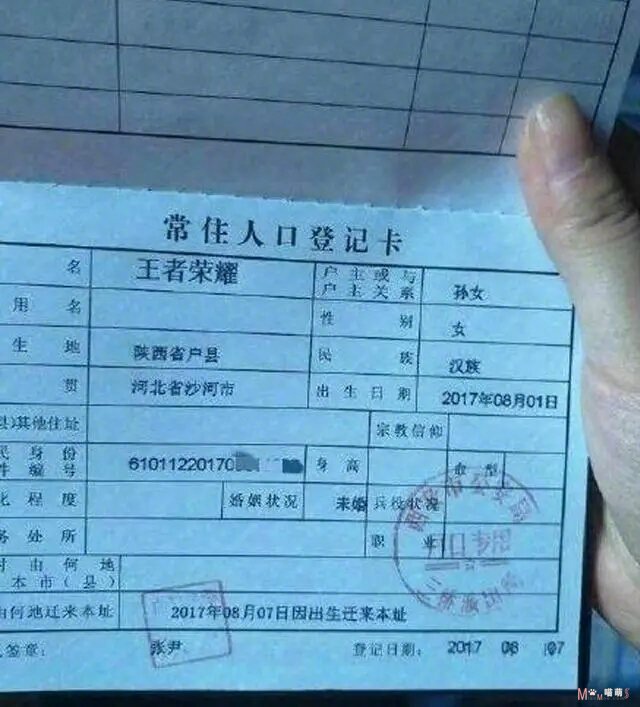 常住人口登记卡
名 王者荣耀 户主或与户主关系 孙女
用名 性别 女
生地 陕西省户县 民族 汉族
贯 河北省沙河市 出生日期 2017年08月01日
县)其他住址 宗教信仰
民身份件编号 6101122017 身高 血型
化程度 婚姻状况 未婚 兵役状况
务处所 职业
时由何地本市(县)
由何地迁来本址 2017年08月07日因出生迁来本址
签章: 张尹 登记日期: 2017 08 07
户口专用
喵萌